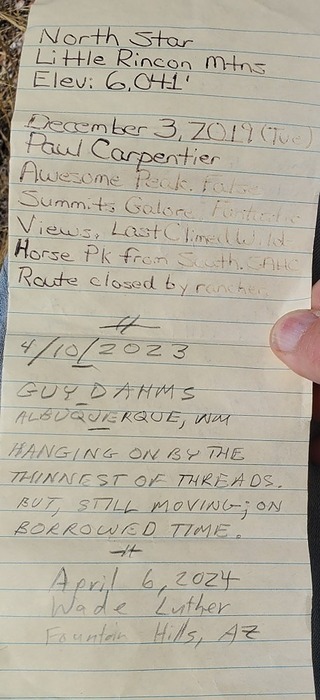 North Star
Little Rincon Mtns
Elev: 6,041'
December 3, 2019 (Tue)
Paul Carpentier
Awesome Peak. False
Summits Galore. Fantastic
Views. Last Climed Wild
Horse Pk from South. SAHC
Route closed by rancher
4/10/2023
GUY DAHMS
ALBUQUERQUE, NM
HANGING ON BY THE
THINNEST OF THREADS.
BUT, STILL MOVING; ON
BORROWED TIME.
April 6, 2024
Wade Luther
Fountain Hills, AZ